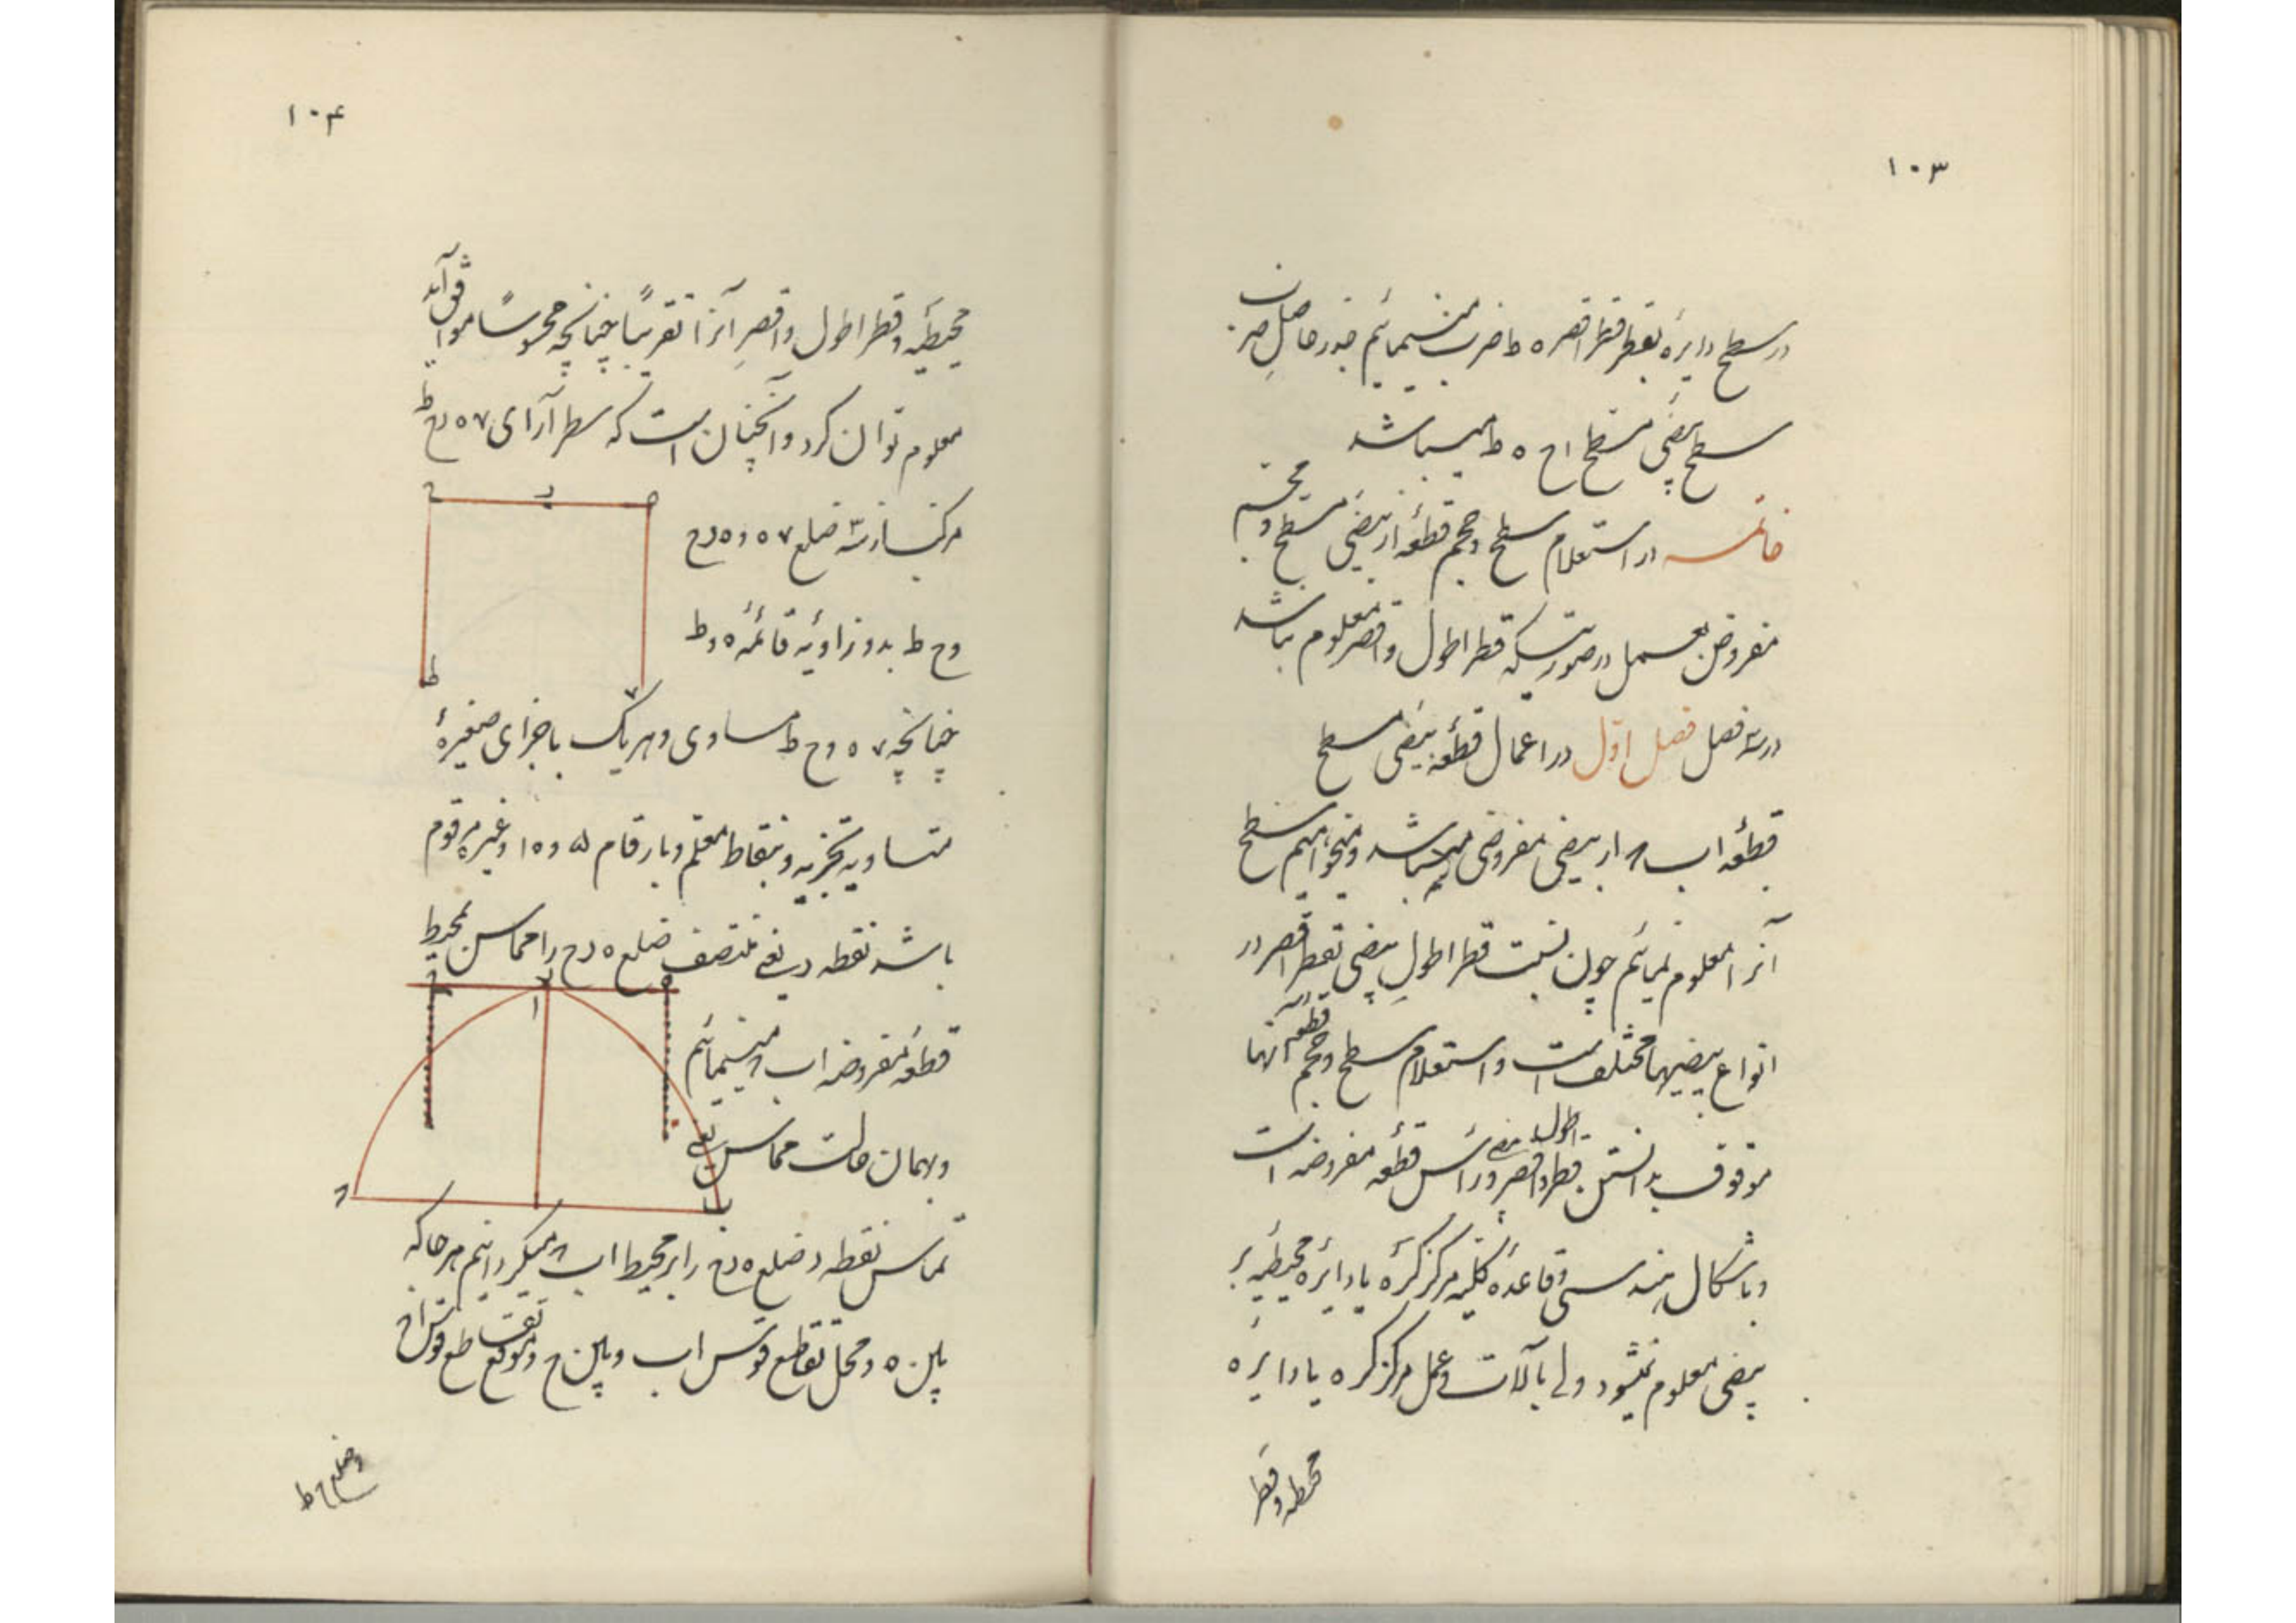 ۱۰۳
در سطح دایره بقطر اقصر ه ط ضرب مینمائیم جذر حاصل ضرب آن
سطح بیضی مسطح اح ه ط میباشد
خاتمه در استعلام سطح و حجم قطعهٔ از بیضی مسطح و مجسم
مفروض بعمل در صورتیکه قطر اطول و اقصر معلوم نباشد
در سه فصل فصل اول در اعمال قطعه بیضی مسطح
قطعه اب ۸ از بیضی مفروض میباشد و میخواهیم سطح
آنرا معلوم نمائیم چون نسبت قطر اطول بیضی بقطر اقصر در
انواع بیضیها مختلف است و استعلام سطح و حجم قطعه آنها
موقوف بدانستن قطر اطول و اقصر و رأس قطعه مفروضه است
و باشکال هندسی و قاعدهٔ کلیه مرکز کره یا دایرهٔ محیطیه بر
بیضی معلوم نمیشود ولی بآلات و عمل مرکز کره یا دایره
محیطه و قطر
۱۰۴
محیطیه و قطر اطول و اقصر آنرا تقریباً چنانچه محسوساً موافق آید
معلوم توان کرد و آنچنان است که سطر آرای ۷ ه ر ح ط
مرکب از سه ضلع ۷ ه و ه ر ح
و ح ط بدو زاویه قائمه ه و ط
چنانچه ۷ ه و ح ط مساوی و هریک باجزای صغیرهٔ
متساویه تجزیه و بنقاط معلم و بارقام ۵ و ۱۰ و غیره مرقوم
باشد نقطه ر یعنی منتصف ضلع ه ر ح را مماس محیط
قطعهٔ مفروضه اب ۸ مینمائیم
و بهمان حالت مماس یعنی
تماس نقطه ر ضلع ه ر ح را بر محیط اب ۸ میگردانیم هر جا که
بین ه و محل تقاطع قوس اب و بین ح و موقع تقاطع قوس ا ح
و ضلع ح ط